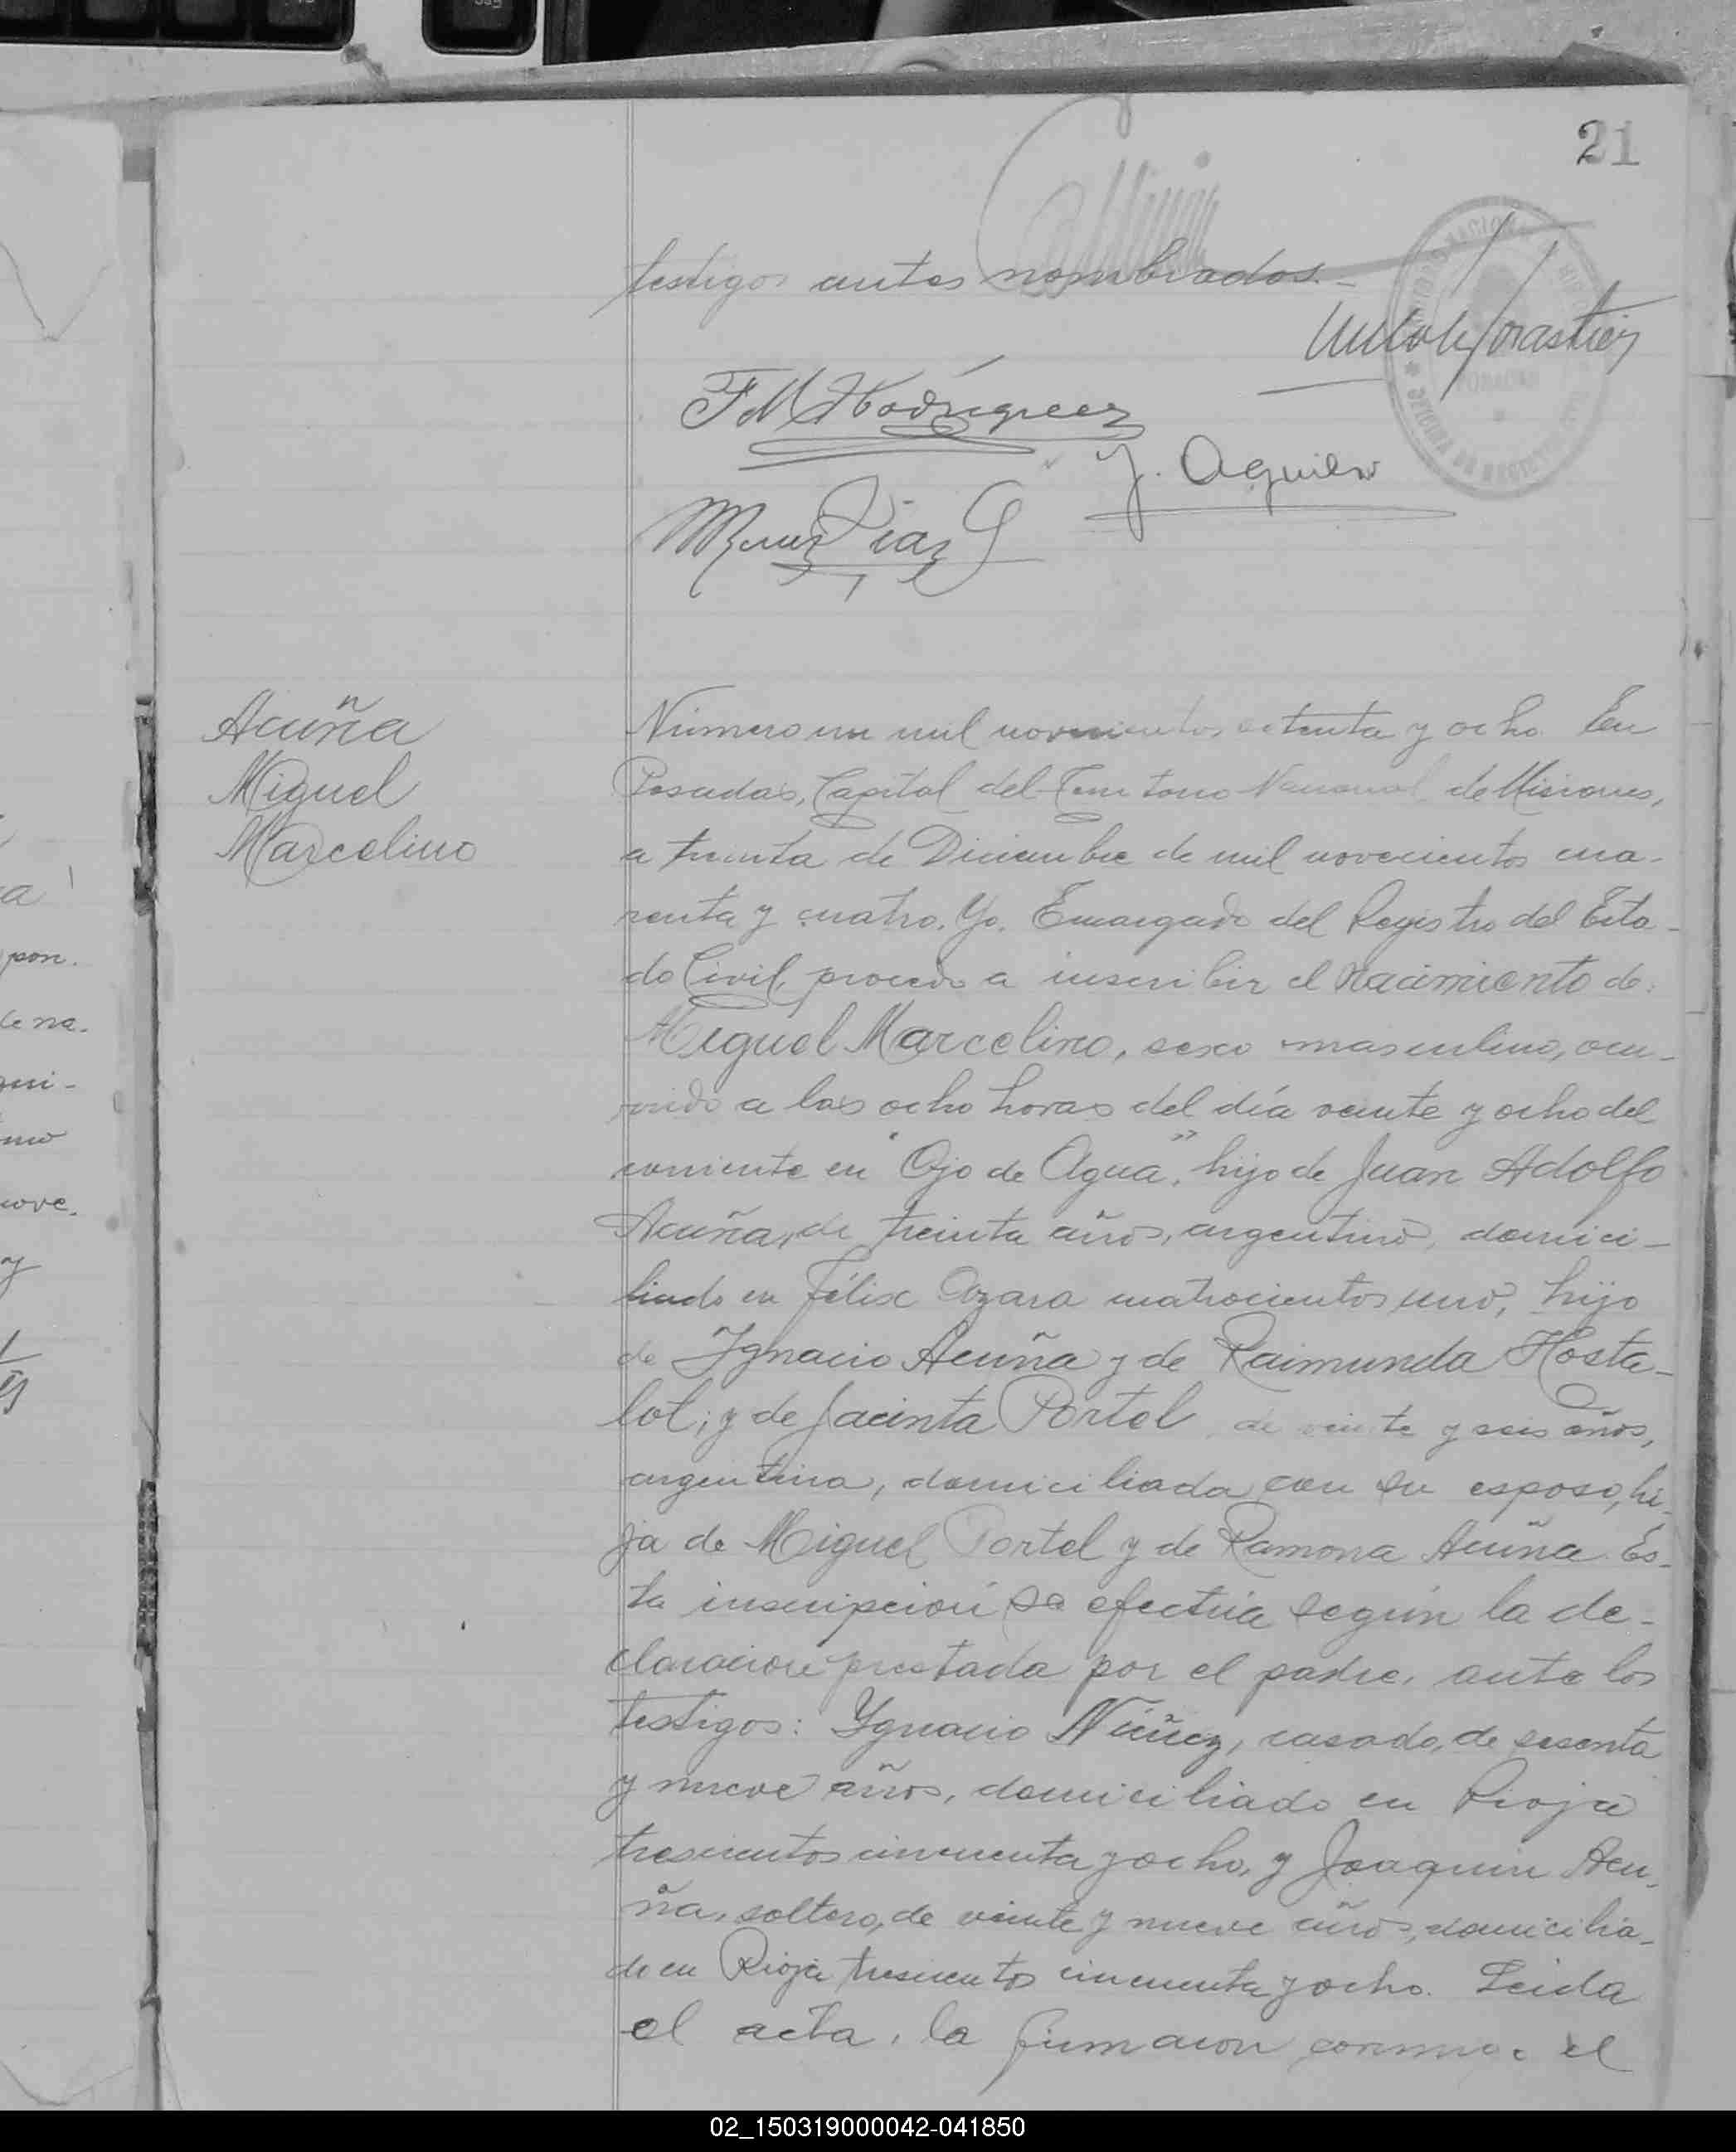 21
testigos antes nombrados.-
FM Rodriguez
J. Aguilar
Diaz
Acuña
Miguel
Marcelino
Número un mil novecientos setenta y ocho. En
Posadas, Capital del Territorio Nacional de Misiones,
a treinta de Diciembre de mil novecientos cua-
renta y cuatro. Yo, Encargado del Registro del Esta-
do Civil, procedo a inscribir el nacimiento de:
Miguel Marcelino, sexo masculino, ocu-
rrido a las ocho horas del día veinte y ocho del
corriente en "Ojo de Agua", hijo de Juan Adolfo
Acuña, de treinta años, argentino, domici-
liado en Félix Azara cuatrocientos uno, hijo
de Ignacio Acuña y de Raimunda Hosta-
lot; y de Jacinta Portel de veinte y seis años,
argentina, domiciliada con su esposo, hi-
ja de Miguel Portel y de Ramona Acuña. Es-
ta inscripción se efectúa según la de-
claracione prestada por el padre, ante los
testigos: Ygnacio Núñez, casado, de sesenta
y nueve años, domiciliado en Rioja
trescientos cincuenta y ocho, y Joaquin Acu-
ña, soltero, de veinte y nueve años, domicilia-
do en Rioja trescientos cincuenta y ocho. Leida
el acta, la firmaron conmigo el
a
pon.
de na.
qui-
mo
nove.
y
02_150319000042-041850